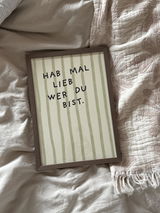 HAB MAL
LIEB
WER DU
BIST.